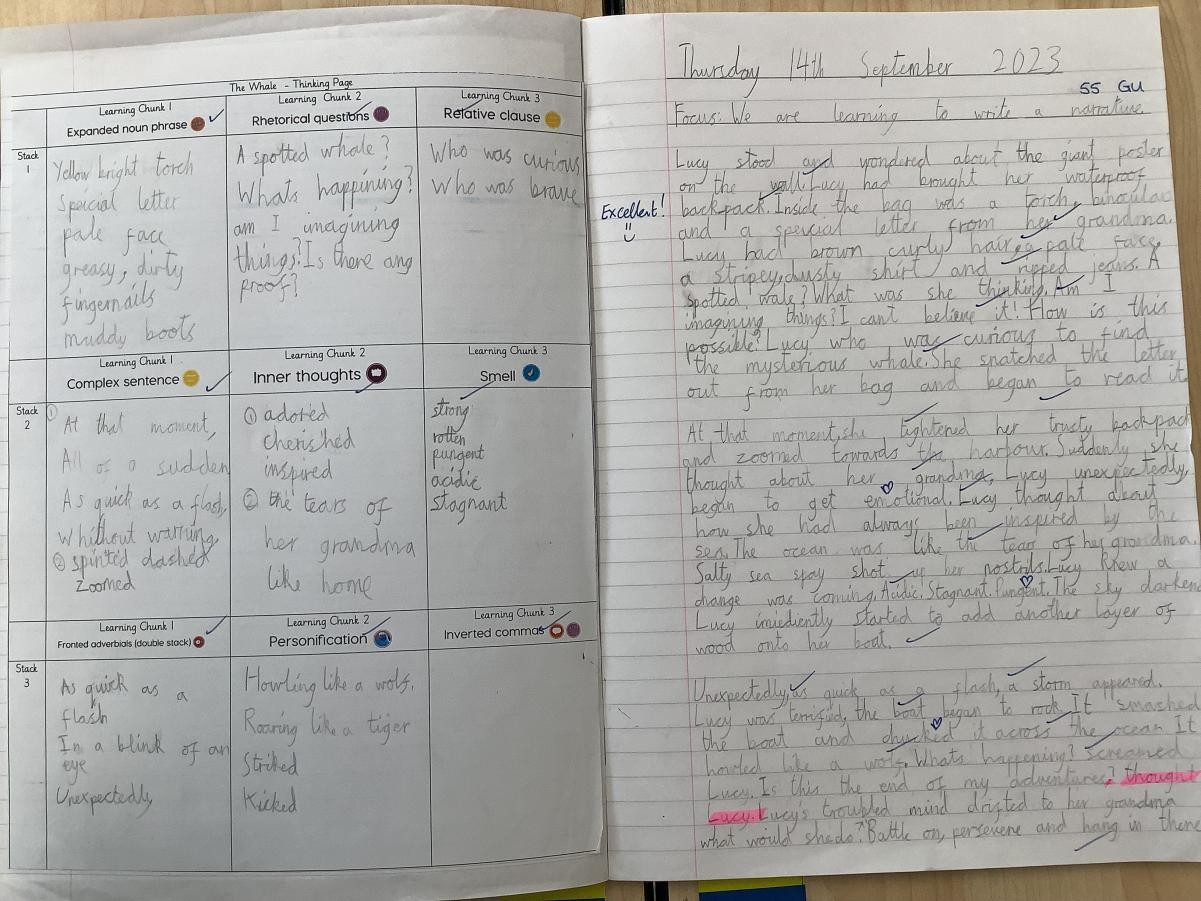 The Whale - Thinking Page
Learning Chunk 1
Expanded noun phrase
Learning Chunk 2
Rhetorical questions
Learning Chunk 3
Relative clause
Stack
1
Yellow bright torch
special letter
pale face
greasy, dirty
fingernails
muddy boots
A spotted whale?
Whats happining?
am I imagining
things? Is there any
proof?
Who was curious
Who was brave
Learning Chunk 1
Complex sentence
Learning Chunk 2
Inner thoughts
Learning Chunk 3
Smell
Stack
2
① At that moment,
All of a sudden
As quick as a flash,
Whithout warning,
② spinted dashed
zoomed
① adored
cherished
inspired
② the tears of
her grandma
like home
strong
rotten
pungent
acidic
stagnant
Learning Chunk 1
Fronted adverbials (double stack)
Learning Chunk 2
Personification
Learning Chunk 3
Inverted commas
Stack
3
As quick as a
flash
In a blink of an
eye
Unexpectedly,
Howling like a wolf.
Roaring like a tiger
Striked
Kicked
Thursday 14th September 2023
SS GU
Focus: We are learning to write a narrative.
Lucy stood and wondered about the giant poster
on the wall. Lucy had brought her waterproof
Excellent!
backpack. Inside the bag was a torch, binoculars
and a special letter from her grandma.
Lucy had brown curly hair, a pale face,
a stripey, dusty shirt and ripped jeans. A
spotted wale? What was she thinking. Am I
imagining things? I cant believe it! How is this
possible? Lucy who was curious to find
the mysterious whale. She snatched the letter
out from her bag and began to read it
At that moment, she tightened her trusty backpack
and zoomed towards the harbour. Suddenly she
thought about her grandma, Lucy unexpectedly,
began to get emotional. Lucy thought about
how she had always been inspired by the
sea. The ocean was like the tears of her grandma.
Salty sea spay shot up her nostrils. Lucy knew a
change was coming. Acidic. Stagnant. Pungent. The sky darkend
Lucy imiediently started to add another layer of
wood onto her boat.
Unexpectedly, as quick as a flash, a storm appeared.
Lucy was terrified, the boat began to rock. It smashed
the boat and chucked it across the ocean. It
howled like a wolf. Whats happening? Screamed
Lucy. Is this the end of my adventures? thought
Lucy. Lucy's troubled mind drifted to her grandma
what would she do? Battle on, persevere and hang in there